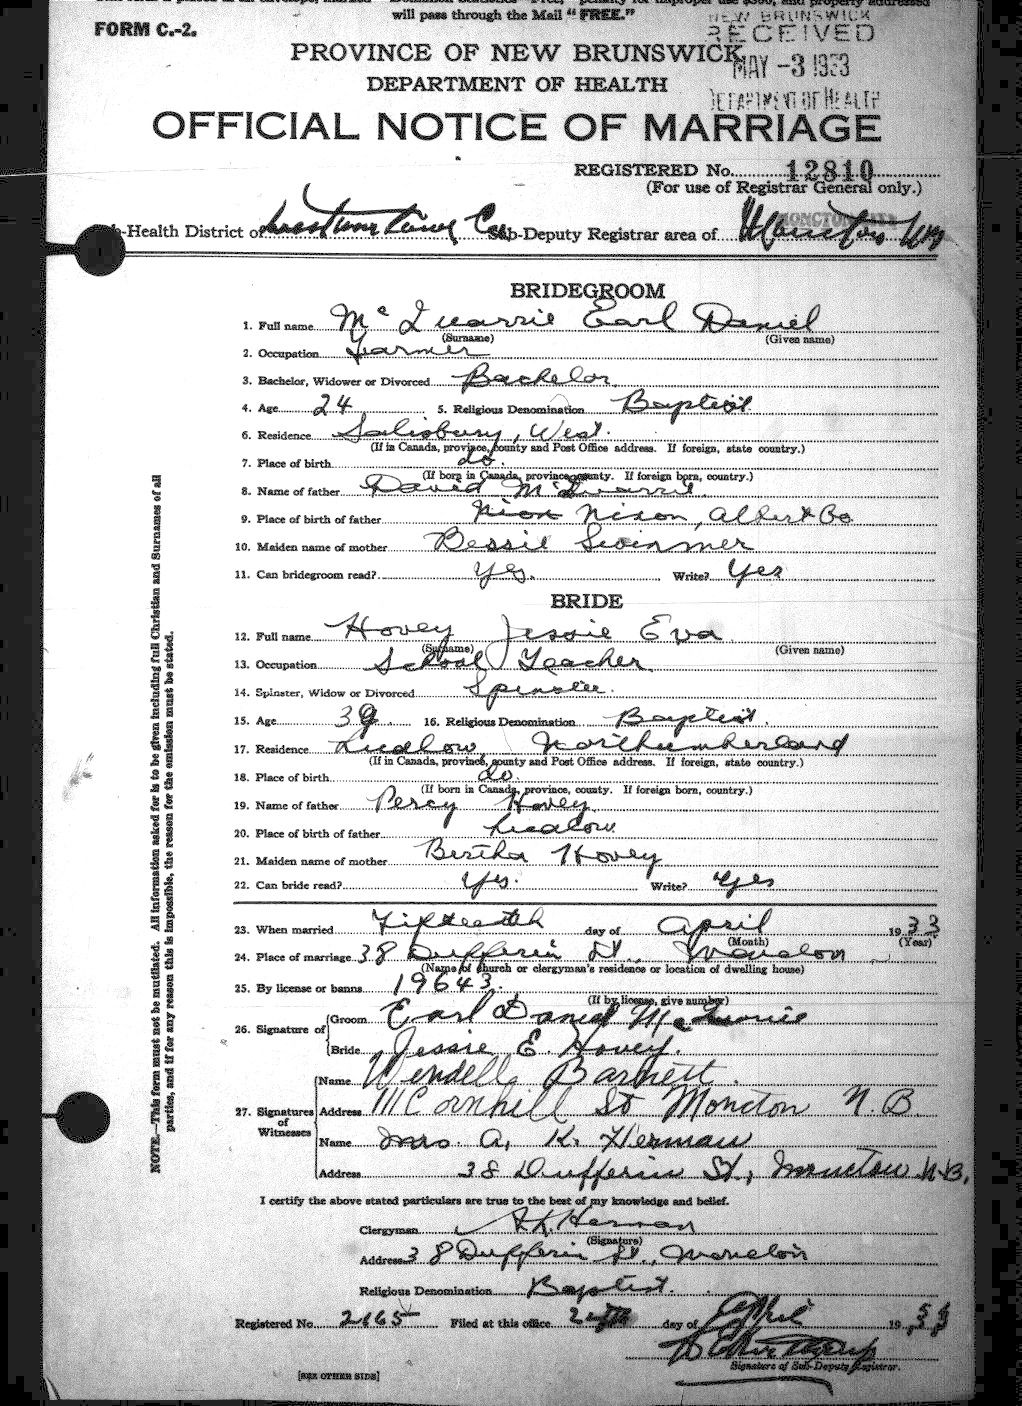 will pass through the Mail "FREE."
FORM C.-2.
NEW BRUNSWICK
RECEIVED
MAY -3 1933
DEPARTMENT OF HEALTH
PROVINCE OF NEW BRUNSWICK
DEPARTMENT OF HEALTH
OFFICIAL NOTICE OF MARRIAGE
REGISTERED No. 12810
(For use of Registrar General only.)
-Health District of Westmorland Co. Sub-Deputy Registrar area of Moncton
BRIDEGROOM
1. Full name McQuarrie Earl Daniel
(Surname) (Given name)
2. Occupation Farmer
3. Bachelor, Widower or Divorced Bachelor
4. Age 24 5. Religious Denomination Baptist
6. Residence Salisbury, West.
(If in Canada, province, county and Post Office address. If foreign, state country.)
7. Place of birth do.
(If born in Canada, province, county. If foreign born, country.)
8. Name of father David McQuarrie
9. Place of birth of father Nixon, Albert Co
10. Maiden name of mother Bessie
11. Can bridegroom read? Yes. Write? Yes
BRIDE
12. Full name Hovey Jessie Eva
(Surname) (Given name)
13. Occupation School Teacher
14. Spinster, Widow or Divorced Spinster.
15. Age 16. Religious Denomination Baptist.
17. Residence Ludlow Northumberland
(If in Canada, province, county and Post Office address. If foreign, state country.)
18. Place of birth do.
(If born in Canada, province, county. If foreign born, country.)
19. Name of father Percy Hovey
20. Place of birth of father Ludlow
21. Maiden name of mother Bertha Hovey
22. Can bride read? Yes. Write? Yes
23. When married Fifteenth day of April 1933
(Month) (Year)
24. Place of marriage 38 Dufferin St., Moncton
(Name of church or clergyman's residence or location of dwelling house)
25. By license or banns 19643.
(If by license, give number)
26. Signature of
Groom Earl Daniel McQuarrie
Bride Jessie E. Hovey.
27. Signatures of Witnesses
Name Wendell Barnett.
Address 111 Cornhill St Moncton N.B.
Name Mrs. A. K. Herman
Address 38 Dufferin St., Moncton N.B.
I certify the above stated particulars are true to the best of my knowledge and belief.
Clergyman A.K. Herman
(Signature)
Address 38 Dufferin St., Moncton
Religious Denomination Baptist.
Registered No. 2665 Filed at this office day of April 1933
Signature of Sub-Deputy Registrar.
[SEE OTHER SIDE]
NOTE.—This form must not be mutilated. All information asked for is to be given including full Christian and Surnames of all
parties, and if for any reason this is impossible, the reason for the emission must be stated.